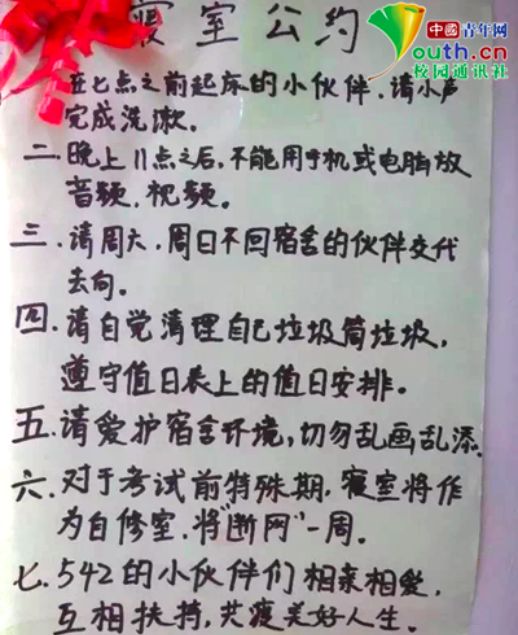 中國青年网
Youth.cn
校园通讯社
寝室公约
在七点之前起床的小伙伴，请小声
完成洗漱。
二、晚上11点之后，不能用手机或电脑放
音频，视频。
三、请周六、周日不回宿舍的伙伴交代
去向。
四、请自觉清理自己垃圾筒垃圾，
遵守值日表上的值日安排。
五、请爱护宿舍环境，切勿乱画乱添。
六、对于考试前特殊期，寝室将作
为自修室，将“断网”一周。
七、542的小伙伴们相亲相爱，
互相扶持，共渡美好人生。